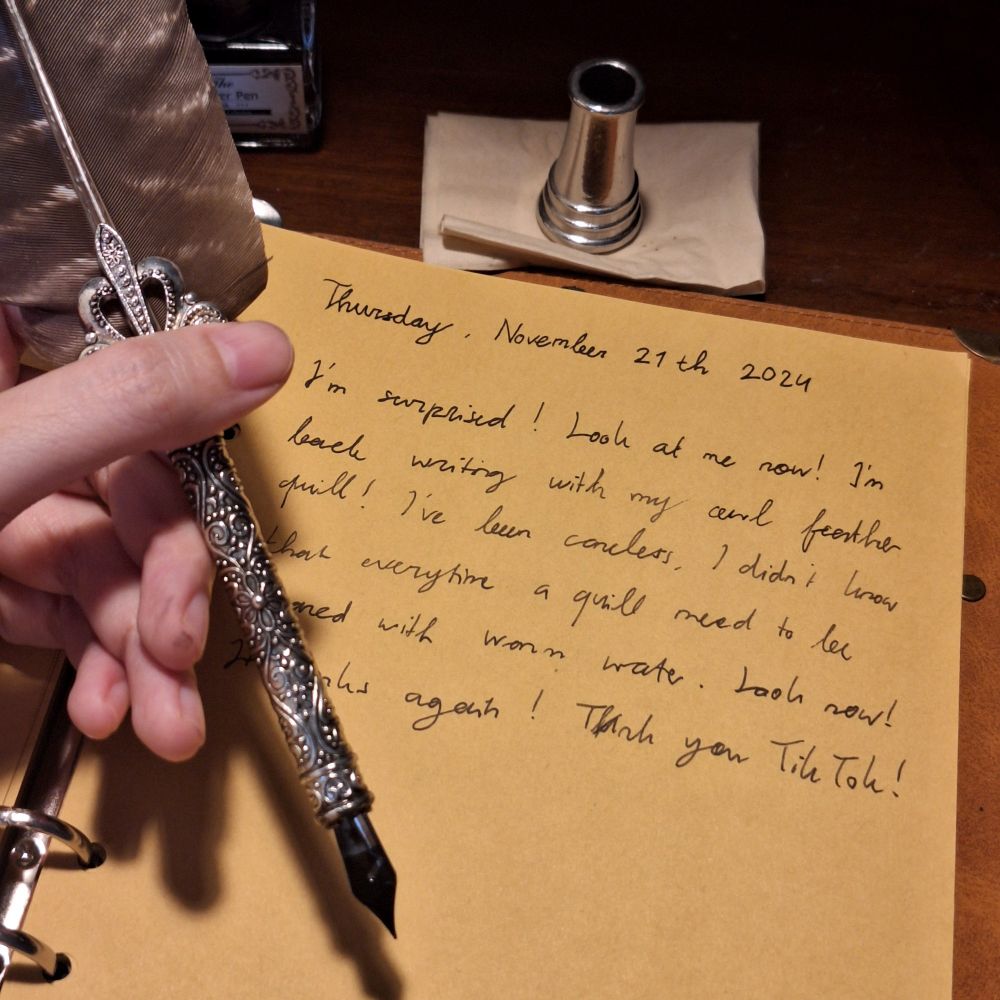 The
er Pen
Thursday, November 21th 2024
I'm surprised! Look at me now! I'm
back writing with my owl feather
quill! I've been careless, I didn't know
that everytime a quill need to be
ned with warm water. Look now!
ks again! Thank you TikTok!